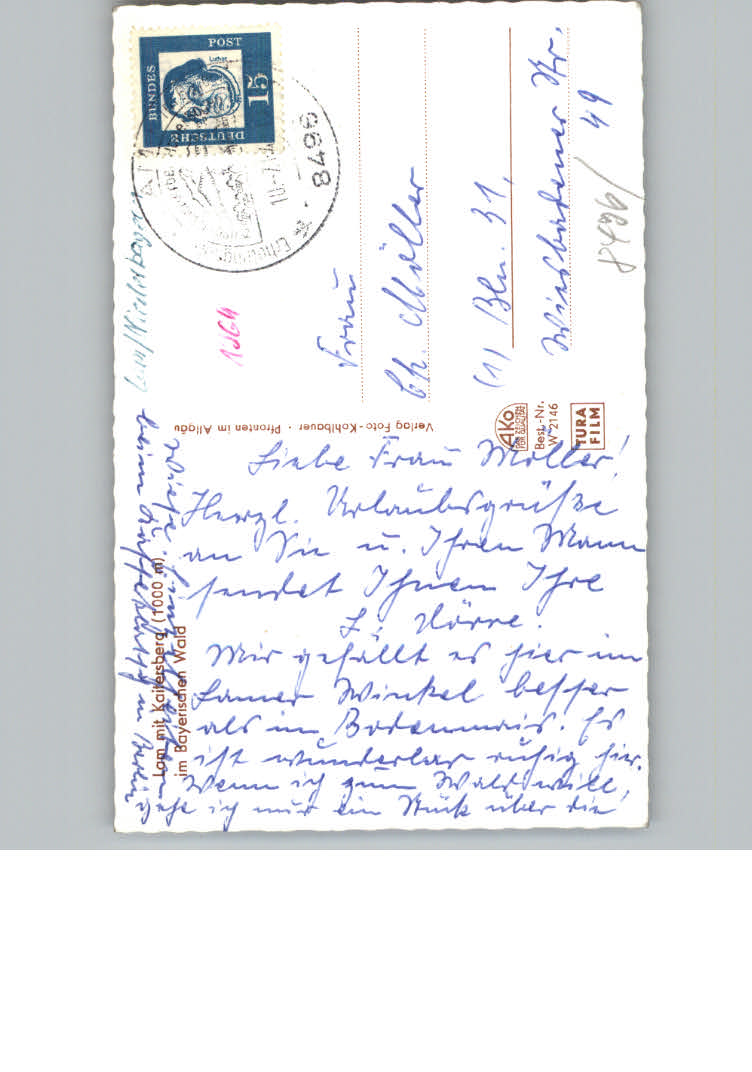 Liebe Frau Möller!
Herzl. Urlaubsgrüße
an Sie u. Ihren Mann
sendet Ihnen Ihre
L. Dörre.
Mir gefällt es hier im
Lamer Winkel besser
als in Bodenmais. Es
ist wunderbar ruhig hier.
Wenn ich zum Wald will,
gehe ich nur ein Stück über die
Wiese.
beim in Berlin
Lam mit Kaitersberg (1000 m)
im Bayerischen Wald
Verlag Foto-Kohlbauer · Pfronten im Allgäu
AKO
Best.-Nr.
W 2146
TURA
FILM
Frau
Ch. Möller
(1) Bln. 31,
Wiesbadener Str.
49
DEUTSCHE
BUNDES
POST
15
Luther
9678
1964